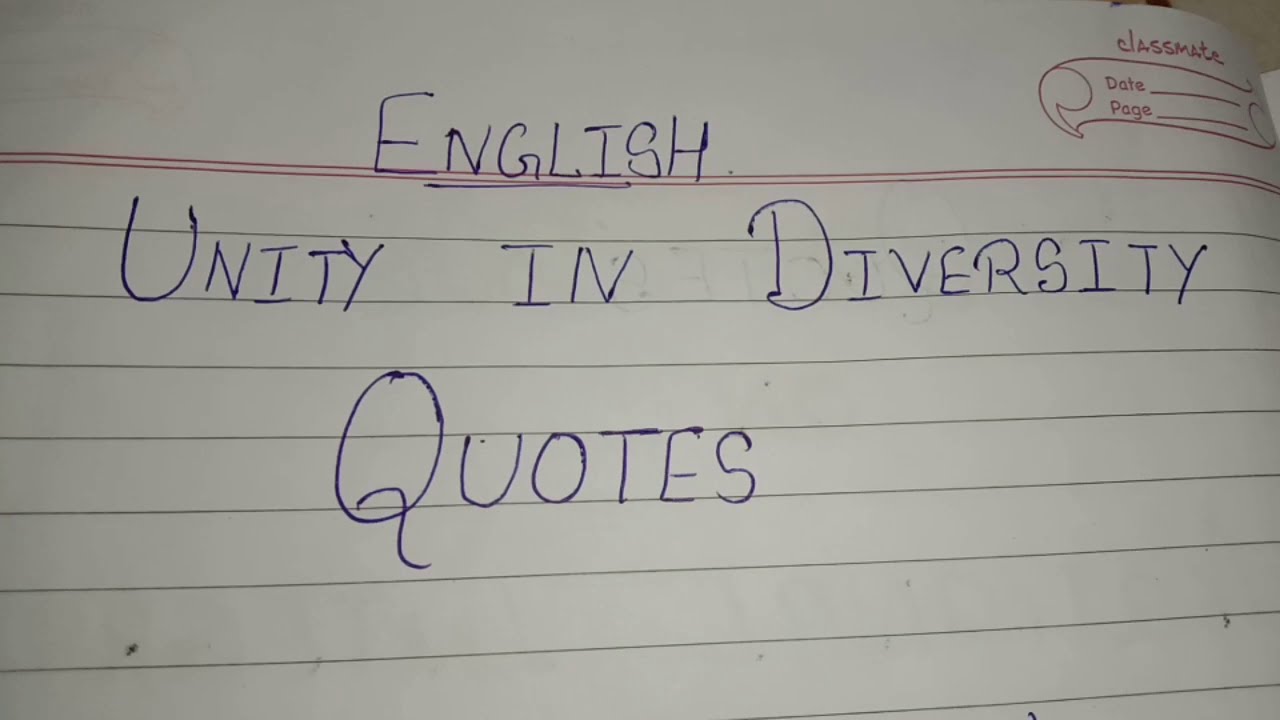 classmate
Date
Page
ENGLISH.
UNITY IN DIVERSITY
QUOTES